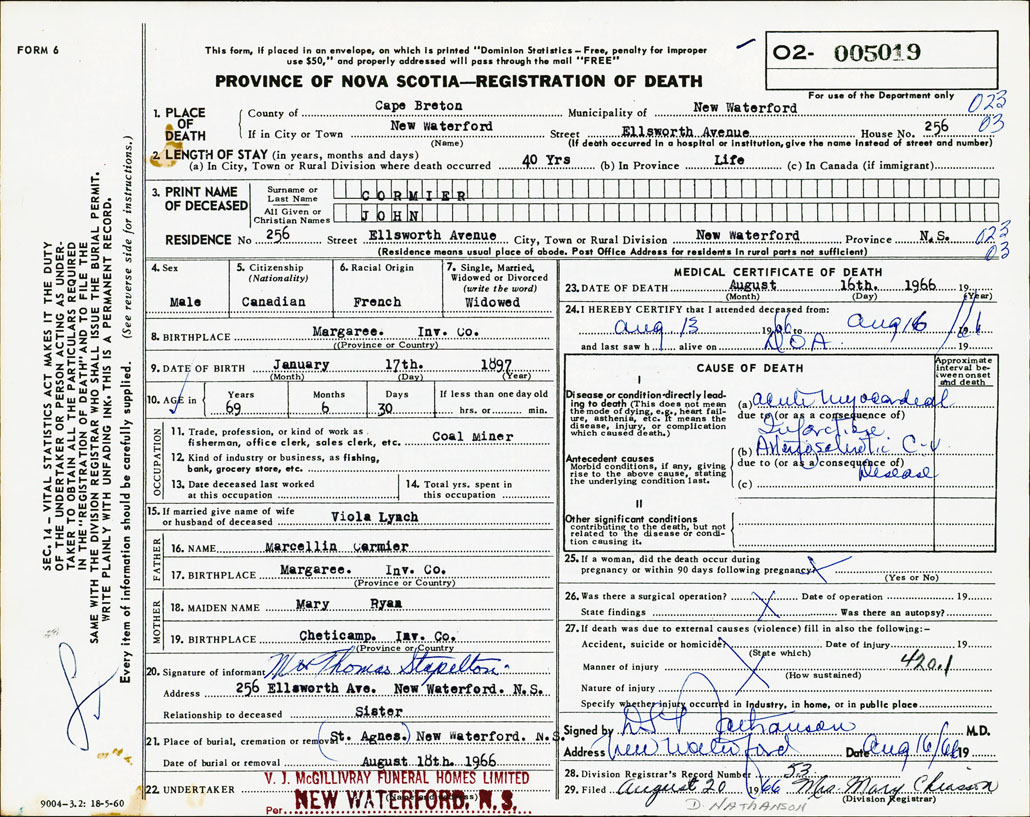 FORM 6
This form, if placed in an envelope, on which is printed "Dominion Statistics – Free, penalty for improper
use $50," and properly addressed will pass through the mail "FREE"
PROVINCE OF NOVA SCOTIA—REGISTRATION OF DEATH
02- 005019
For use of the Department only
023
03
1. PLACE OF DEATH
County of Cape Breton Municipality of New Waterford
If in City or Town New Waterford Street Ellsworth Avenue House No. 256
(Name) (If death occurred in a hospital or institution, give the name instead of street and number)
2. LENGTH OF STAY (in years, months and days)
(a) In City, Town or Rural Division where death occurred 40 Yrs (b) In Province Life (c) In Canada (if immigrant)
3. PRINT NAME OF DECEASED
Surname or Last Name CORMIER
All Given or Christian Names JOHN
RESIDENCE No 256 Street Ellsworth Avenue City, Town or Rural Division New Waterford Province N.S. 023
03
(Residence means usual place of abode. Post Office Address for residents in rural parts not sufficient)
4. Sex
Male
5. Citizenship (Nationality)
Canadian
6. Racial Origin
French
7. Single, Married, Widowed or Divorced (write the word)
Widowed
8. BIRTHPLACE Margaree. Inv. Co.
(Province or Country)
9. DATE OF BIRTH January 17th. 1897
(Month) (Day) (Year)
10. AGE in
Years Months Days If less than one day old
69 6 30 hrs. or min.
OCCUPATION
11. Trade, profession, or kind of work as
fisherman, office clerk, sales clerk, etc. Coal Miner
12. Kind of industry or business, as fishing,
bank, grocery store, etc.
13. Date deceased last worked
at this occupation
14. Total yrs. spent in
this occupation
15. If married give name of wife
or husband of deceased Viola Lynch
FATHER
16. NAME Marcellin Cormier
17. BIRTHPLACE Margaree. Inv. Co.
(Province or Country)
MOTHER
18. MAIDEN NAME Mary Ryan
19. BIRTHPLACE Cheticamp. Inv. Co.
(Province or Country)
20. Signature of informant Mrs Thomas Stapelton
Address 256 Ellsworth Ave. New Waterford. N.S.
Relationship to deceased Sister
21. Place of burial, cremation or removal (St. Agnes.) New Waterford. N.S.
Date of burial or removal August 18th. 1966
22. UNDERTAKER V. J. McGILLIVRAY FUNERAL HOMES LIMITED
(Name and address)
Per NEW WATERFORD, N. S.
MEDICAL CERTIFICATE OF DEATH
23. DATE OF DEATH August 16th. 1966 19
(Month) (Day) (Year)
24. I HEREBY CERTIFY that I attended deceased from:
Aug 13 1966 to Aug 16 1966
and last saw h alive on DOA 19
CAUSE OF DEATH
Approximate interval between onset and death
I
Disease or condition directly leading to death (This does not mean the mode of dying, e.g., heart failure, asthenia, etc. It means the disease, injury, or complication which caused death.)
(a) acute myocardial
due to (or as a consequence of)
Infarction
Antecedent causes
Morbid conditions, if any, giving rise to the above cause, stating the underlying condition last.
(b) Arteriosclerotic C-V
due to (or as a consequence of)
Disease
(c)
II
Other significant conditions
contributing to the death, but not related to the disease or condition causing it.
25. If a woman, did the death occur during
pregnancy or within 90 days following pregnancy
(Yes or No)
26. Was there a surgical operation? Date of operation 19
State findings Was there an autopsy?
27. If death was due to external causes (violence) fill in also the following:–
Accident, suicide or homicide Date of injury 19
(State which)
Manner of injury 420.1
(How sustained)
Nature of injury
Specify whether injury occurred in industry, in home, or in public place
Signed by Nathanson M.D.
Address New Waterford Date Aug 16/66 19
28. Division Registrar's Record Number 53
29. Filed August 20 1966 Mrs Mary Chiasson
(Division Registrar)
D. NATHANSON
SEC. 14 – VITAL STATISTICS ACT MAKES IT THE DUTY
OF THE UNDERTAKER OR PERSON ACTING AS UNDER-
TAKER TO OBTAIN ALL THE PARTICULARS REQUIRED
IN THE "REGISTRATION OF DEATH" AND TO FILE THE
SAME WITH THE DIVISION REGISTRAR WHO SHALL ISSUE THE BURIAL PERMIT.
WRITE PLAINLY WITH UNFADING INK. THIS IS A PERMANENT RECORD.
Every item of information should be carefully supplied. (See reverse side for instructions.)
9004-3.2: 18-5-60